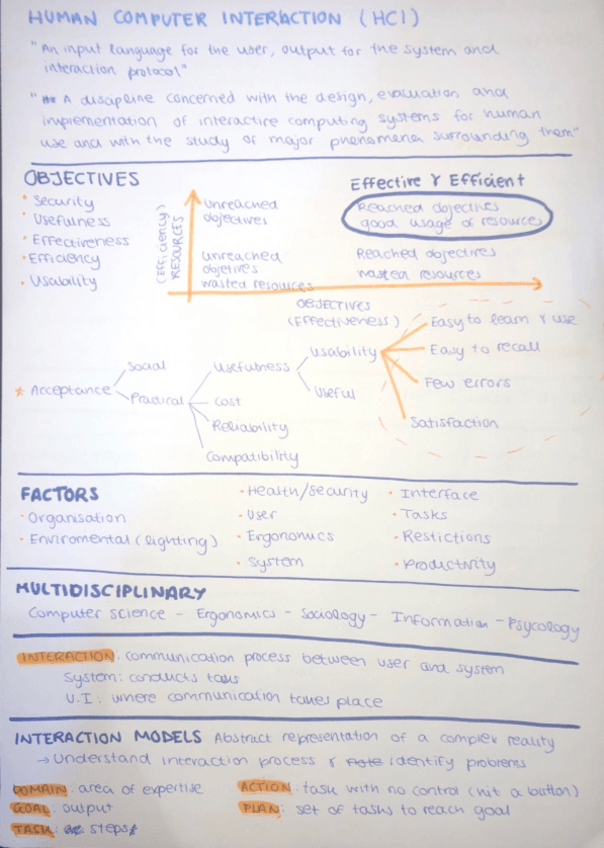 HUMAN COMPUTER INTERACTION (HCI)
"An input language for the user, output for the system and
interaction protocol"
"A discipline concerned with the design, evaluation and
implementation of interactive computing systems for human
use and with the study of major phenomena surrounding them"
OBJECTIVES
· Security
· Usefulness
· Effectiveness
· Efficiency
· Usability
(Efficiency)
RESOURCES
Unreached
objectives
Effective & Efficient
Reached objectives
good usage of resources
Unreached
objetives
wasted resources
Reached objectives
wasted resources
OBJECTIVES
(Effectiveness)
* Acceptance
Social
Practical
Usefulness
Cost
Reliability
Compatibility
Usability
Useful
Easy to learn & use
Easy to recall
Few errors
Satisfaction
FACTORS
· Organisation
· Enviromental (lighting)
· Health/Security
· User
· Ergonomics
· System
· Interface
· Tasks
· Restictions
· Productivity
MULTIDISCIPLINARY
Computer science - Ergonomics - Sociology - Information - Psycology
INTERACTION: communication process between user and system
System: conducts tasks
U.I: where communication takes place
INTERACTION MODELS Abstract representation of a complex reality
→ Understand interaction process & identify problems
DOMAIN: area of expertise
GOAL: output
TASK: steps
ACTION: task with no control (hit a button)
PLAN: set of tasks to reach goal